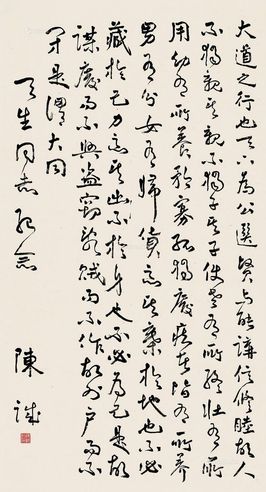 大道之行也天下為公選賢與能講信修睦故人
不獨親其親不獨子其子使老有所終壯有所
用幼有所養矜寡孤獨廢疾者皆有所養
男有分女有歸貨惡其棄於地也不必
藏於己力惡其出不於身也不必為己是故
謀閉而不興盜竊亂賊而不作故外戶而不
閉是謂大同
天生同志紀念
陳誠